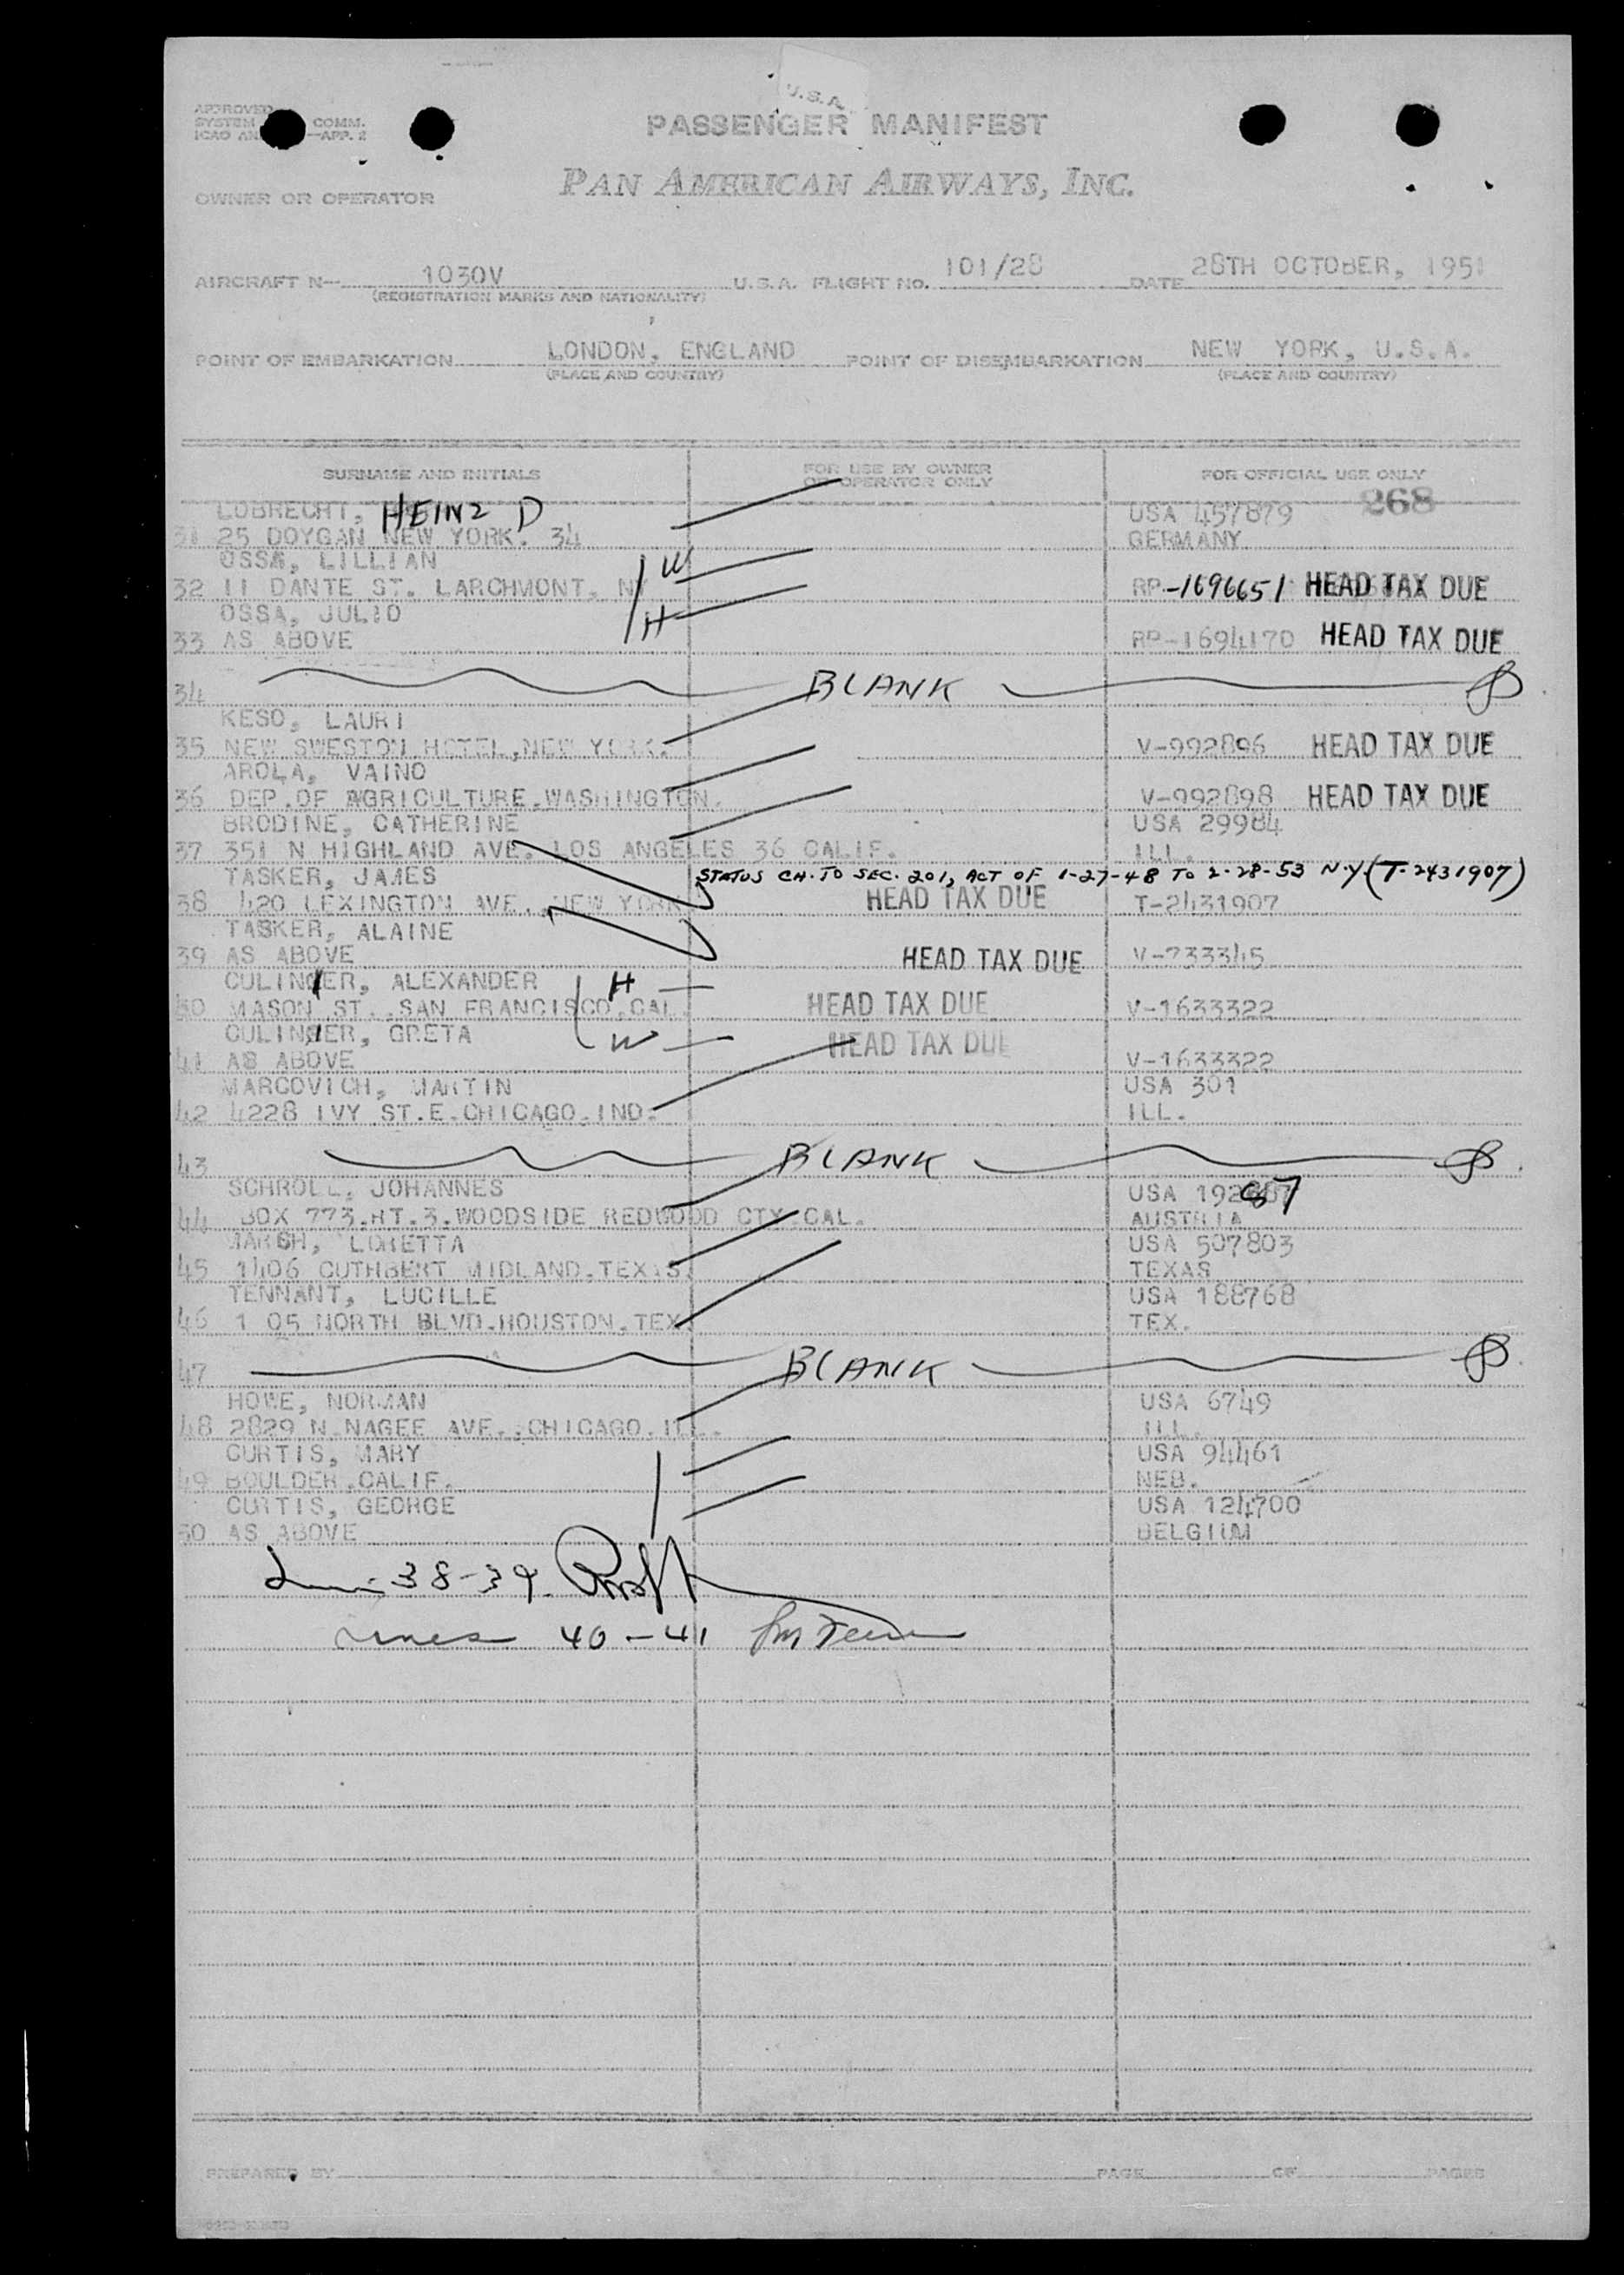 U.S.A.
APPROVED
SYSTEM COMM.
ICAO AN —APP. 2
PASSENGER MANIFEST
OWNER OR OPERATOR
PAN AMERICAN AIRWAYS, INC.
AIRCRAFT N— 1030V U.S.A. FLIGHT NO. 101/28 DATE 28TH OCTOBER, 1951
(REGISTRATION MARKS AND NATIONALITY)
POINT OF EMBARKATION LONDON, ENGLAND POINT OF DISEMBARKATION NEW YORK, U.S.A.
(PLACE AND COUNTRY) (PLACE AND COUNTRY)
SURNAME AND INITIALS FOR USE BY OWNER OR OPERATOR ONLY FOR OFFICIAL USE ONLY
268
LOBRECHT, HEINZ D USA 457879
31 25 DOYGAN NEW YORK. 34 GERMANY
OSSA, LILLIAN W
32 11 DANTE ST. LARCHMONT, NY RP-1696651 HEAD TAX DUE
OSSA, JULIO H
33 AS ABOVE RP-1694170 HEAD TAX DUE
34 BLANK
KESO, LAURI
35 NEW SWESTON HOTEL, NEW YORK. V-992896 HEAD TAX DUE
AROLA, VAINO
36 DEP.OF AGRICULTURE.WASHINGTON. V-992898 HEAD TAX DUE
BRODINE, CATHERINE USA 29984
37 351 N HIGHLAND AVE. LOS ANGELES 36 CALIF. ILL.
TASKER, JAMES STATUS CH. TO SEC. 201, ACT OF 1-27-48 TO 2-28-53 N.Y. (T-2431907)
38 420 LEXINGTON AVE., NEW YORK HEAD TAX DUE T-2431907
TASKER, ALAINE
39 AS ABOVE HEAD TAX DUE V-733345
ALEXANDER H
MASON ST., SAN FRANCISCO.CAL. HEAD TAX DUE V-1633322
GRETA W HEAD TAX DUE
41 AS ABOVE V-1633322
MARCOVICH, MARTIN USA 301
42 4228 IVY ST.E.CHICAGO.IND. ILL.
43 BLANK
SCHROLL, JOHANNES USA
44 BOX 773.RT.3.WOODSIDE REDWOOD CTY.CAL. AUSTRIA
MARSH, LORETTA USA 507803
45 1406 CUTHBERT MIDLAND.TEXAS. TEXAS
TENNANT, LUCILLE USA 188768
46 1 05 NORTH BLVD.HOUSTON.TEX. TEX.
47 BLANK
HOWE, NORMAN USA 6749
48 2829 N.NAGEE AVE.,CHICAGO.ILL. ILL.
CURTIS, MARY USA 94461
49 BOULDER.CALIF. NEB.
CURTIS, GEORGE USA 124700
50 AS ABOVE BELGIUM
38-39
Lines 40-41
PREPARED BY PAGE OF PAGES